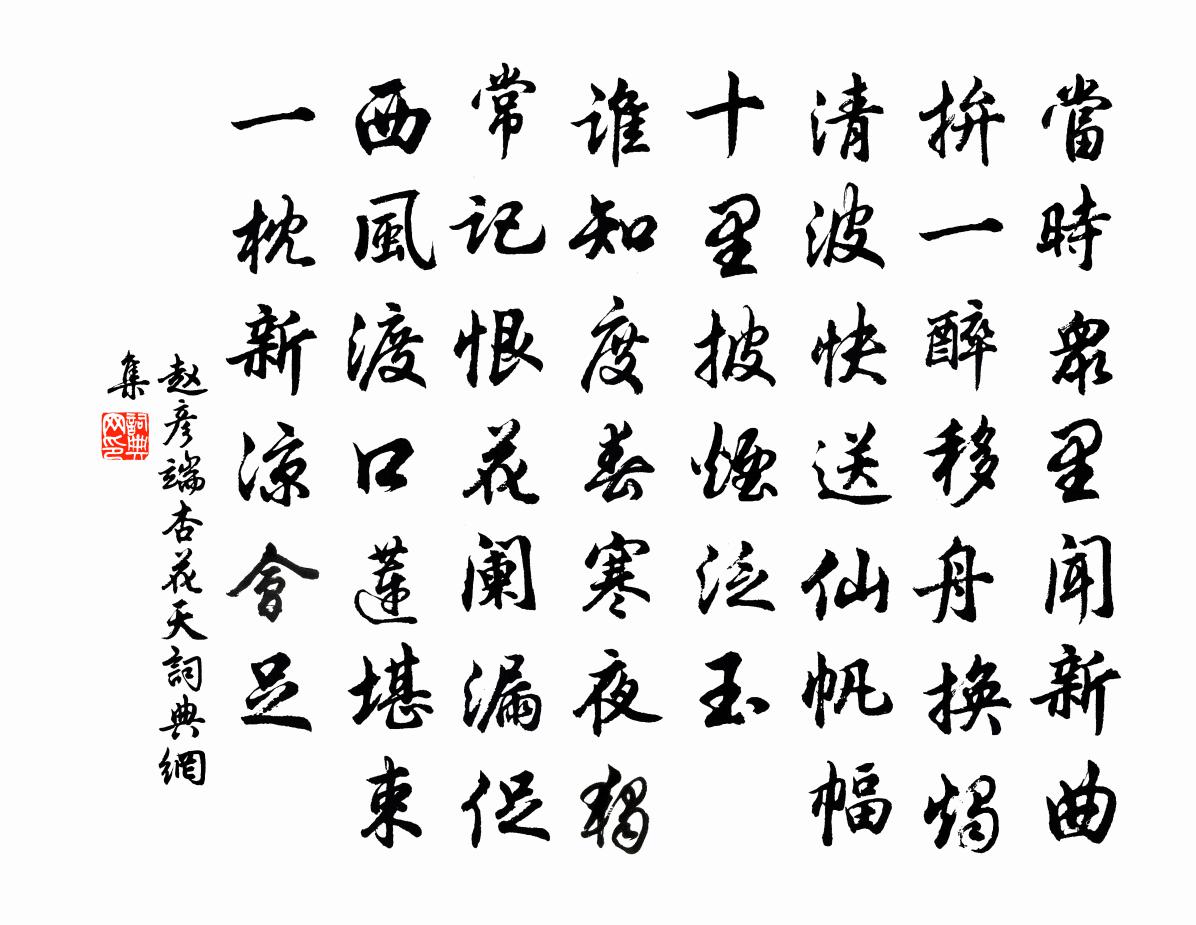 當時眾里聞新曲
拚一醉移舟換燭
清波快送仙帆幅
十里披煙泛玉
誰知度春寒夜獨
常記恨花闌漏促
西風渡口蓮堪束
一枕新涼會足
赵彦端杏花天詞典網
集
詞典
网印